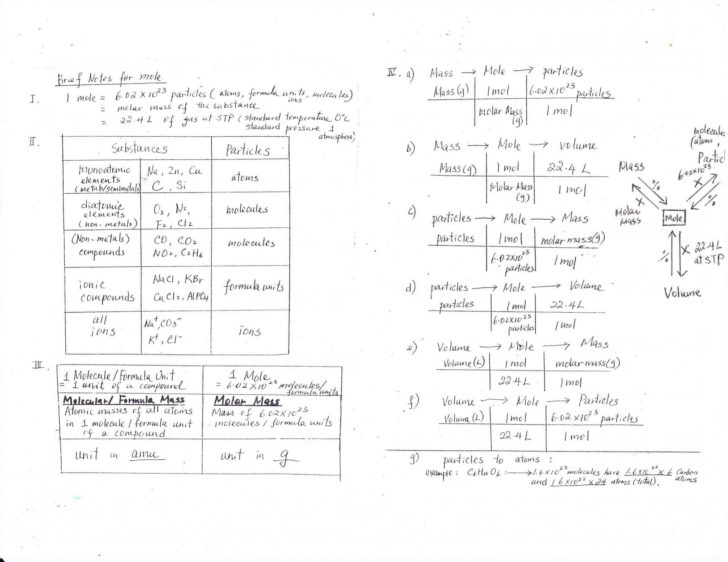 Brief Notes for mole
I. 1 mole = 6.02 X 10²³ particles (atoms, formula units, molecules)
ions
= molar mass of the substance
= 22.4 L of gas at STP (standard temperature 0°C
standard pressure 1
atmosphere)
II.
Substances | Particles
monoatomic elements (metals/semimetals) | Na, Zn, Cu C, Si | atoms
diatomic elements (non-metals) | O₂, N₂, F₂, Cl₂ | molecules
(Non-metals) compounds | CO, CO₂ NO₂, C₂H₆ | molecules
ionic compounds | NaCl, KBr CaCl₂, AlPO₄ | formula units
all ions | Na⁺, CO₃⁻ K⁺, Cl⁻ | ions
III.
1 Molecule/Formula Unit = 1 unit of a compound | 1 Mole = 6.02 X 10²³ molecules/formula units
Molecular/Formula Mass | Molar Mass
Atomic masses of all atoms | Mass of 6.02X10²³
in 1 molecule/formula unit | molecules/formula units
of a compound
unit in amu | unit in g
IV. a) Mass → Mole → particles
Mass(g) | 1 mol | 6.02X10²³ particles
molar Mass (g) | 1 mol
b) Mass → Mole → volume
Mass(g) | 1 mol | 22.4 L
Molar Mass (g) | 1 mol
c) particles → Mole → Mass
particles | 1 mol | molar mass(g)
6.02X10²³ particles | 1 mol
d) particles → Mole → Volume
particles | 1 mol | 22.4 L
6.02X10²³ particles | 1 mol
e) Volume → Mole → Mass
Volume(L) | 1 mol | molar mass(g)
22.4 L | 1 mol
f) Volume → Mole → Particles
Volume(L) | 1 mol | 6.02 X10²³ particles
22.4 L | 1 mol
g) particles to atoms :
example : → 1.6X10²² molecules have 1.6X10²² X 6 carbon atoms
and 1.6X10²² X 24 atoms (total).
molecule
(atoms,
Particl
6.02X10²³
X
%
Mass
%
X
Molar
Mass
Mole
%
X 22.4L
at STP
Volume